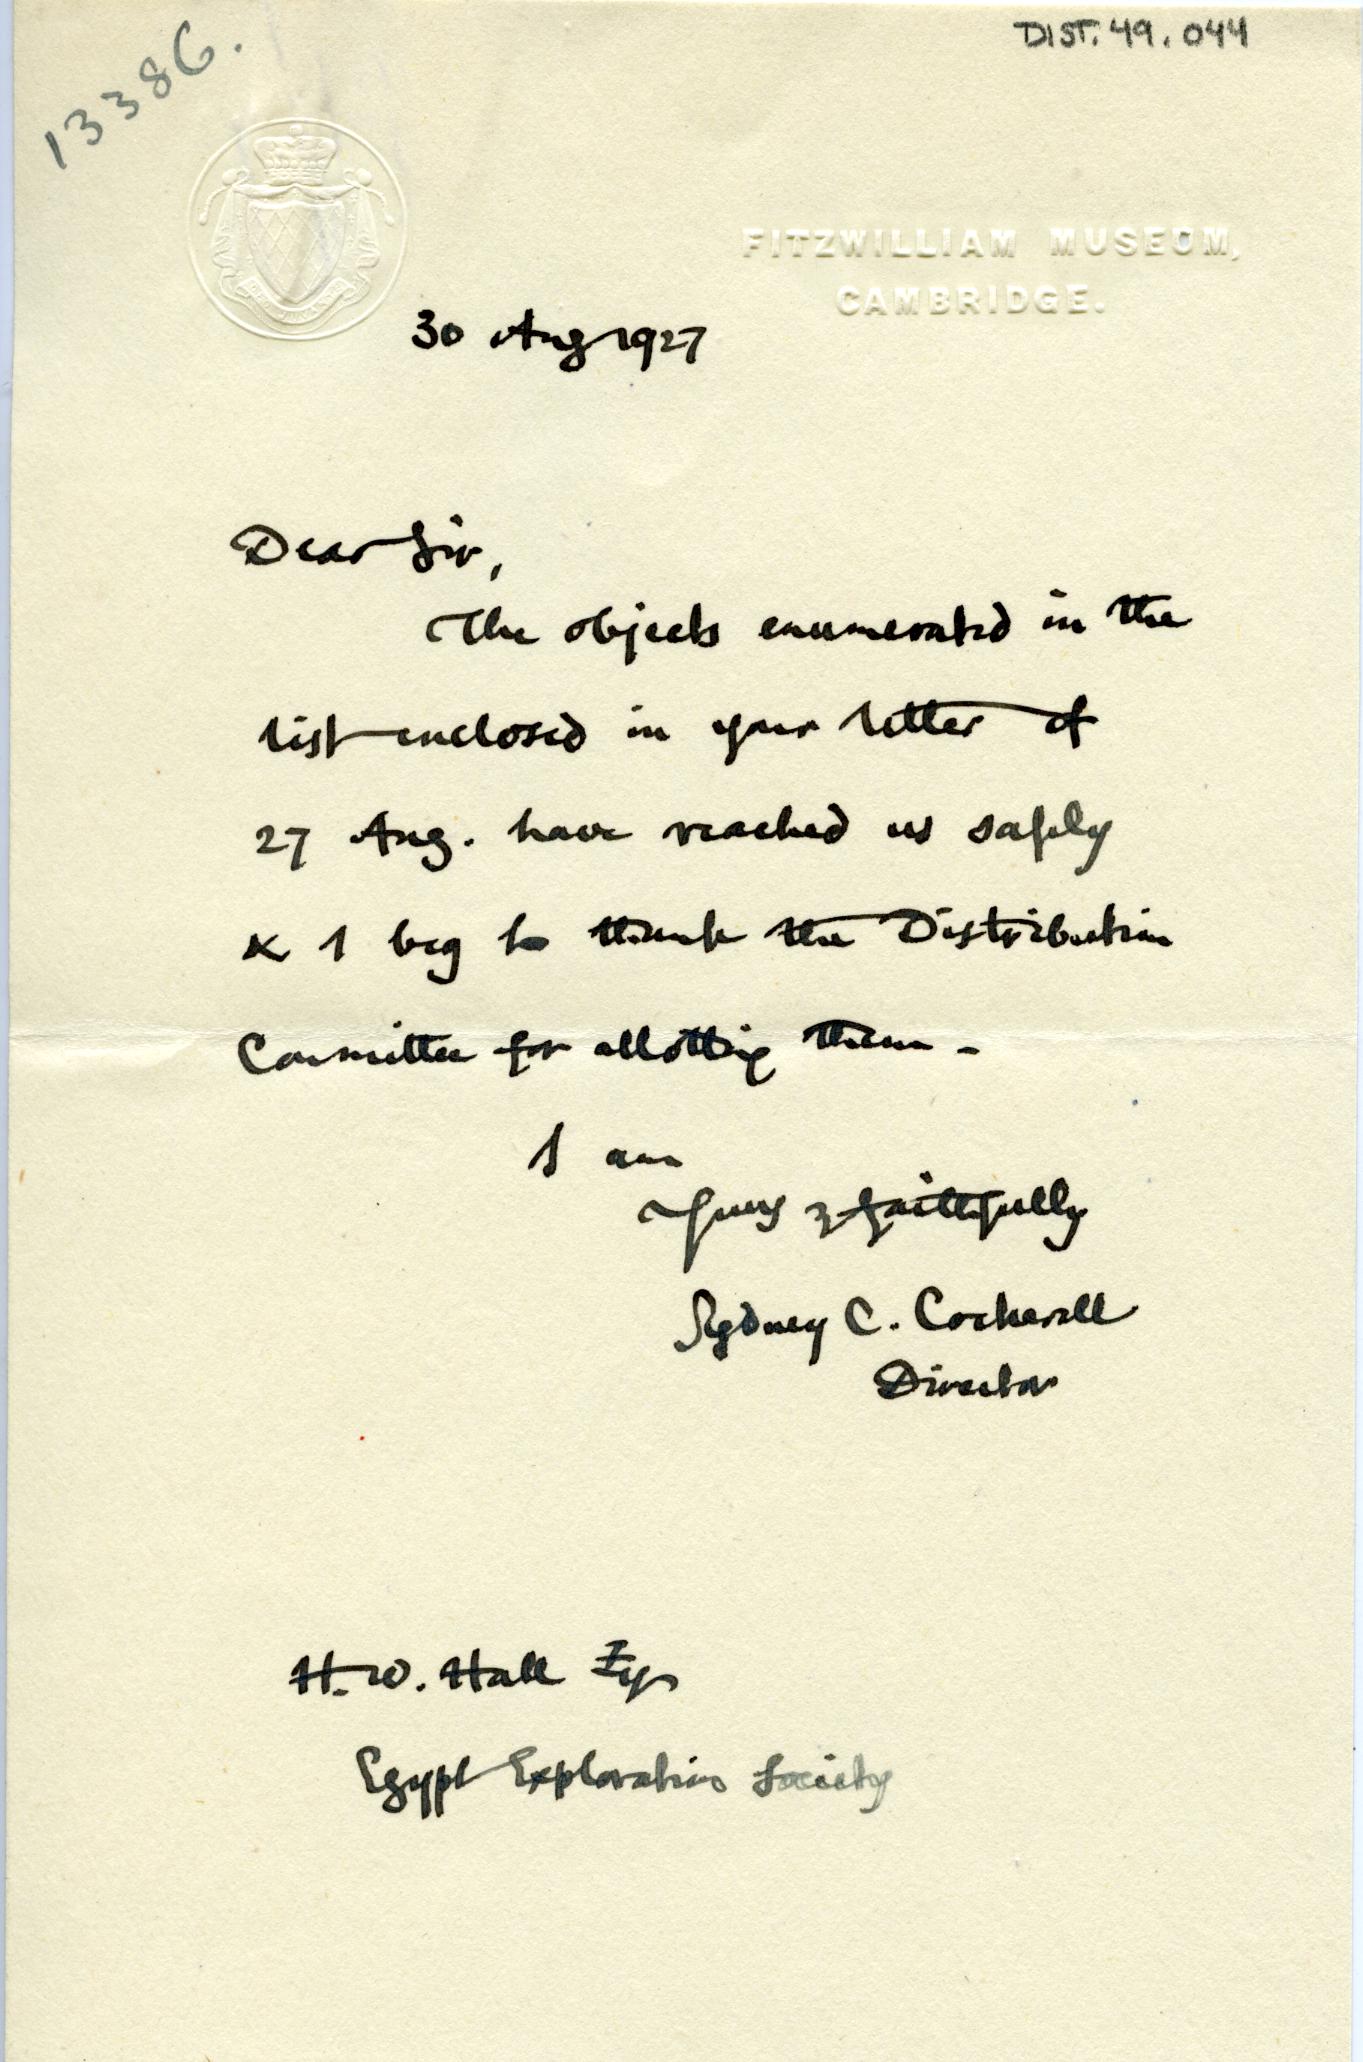 DIST. 49. 044
13386.
FITZWILLIAM MUSEUM,
CAMBRIDGE.
30 Aug 1927
Dear Sir,
The objects enumerated in the
list enclosed in your letter of
27 Aug. have reached us safely
& I beg to thank the Distribution
Committee for allotting them -
I am
Yours faithfully
Sydney C. Cockerell
Director
H. W. Hall Esq
Egypt Exploration Society